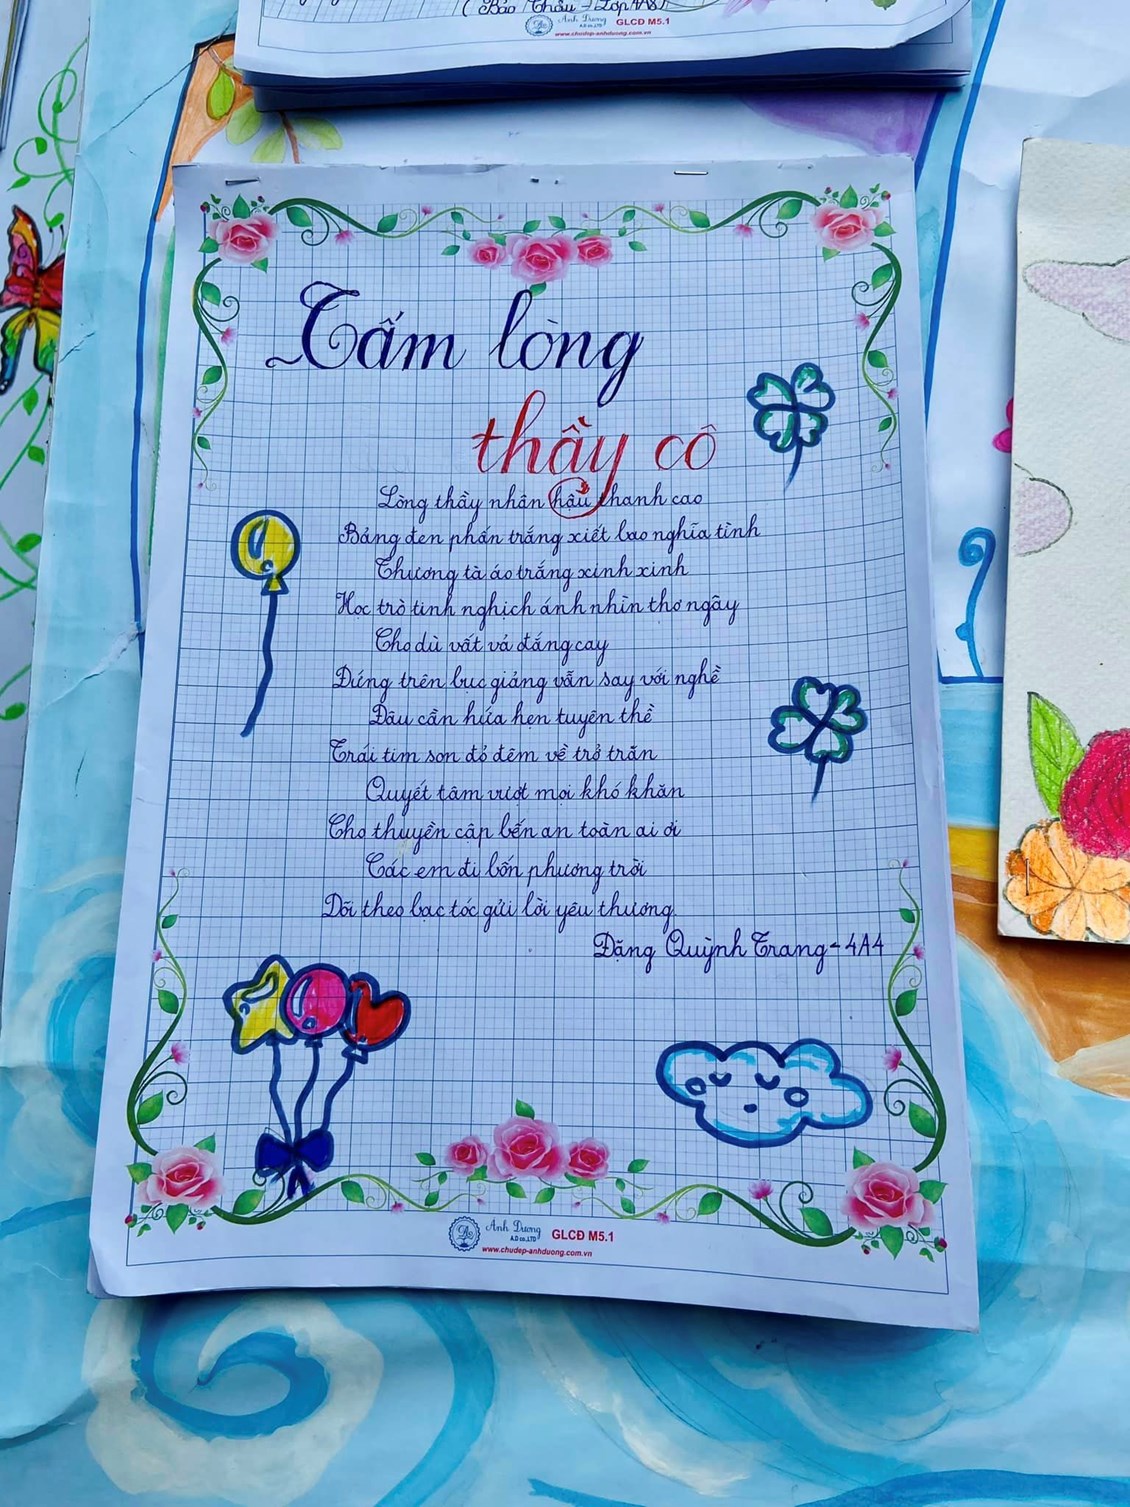 ( Bảo Châu - Lớp 4A8)
Ánh Dương
A.D co.,LTD
GLCĐ M5.1
www.chudep-anhduong.com.vn
Tấm lòng
thầy cô
Lòng thầy nhân hậu thanh cao
Bảng đen phấn trắng xiết bao nghĩa tình
Thương tà áo trắng xinh xinh
Học trò tinh nghịch ánh nhìn thơ ngây
Cho dù vất vả đắng cay
Đứng trên bục giảng vẫn say với nghề
Đâu cần hứa hẹn tuyên thề
Trái tim son đỏ đêm về trở trăn
Quyết tâm vượt mọi khó khăn
Cho thuyền cập bến an toàn ai ơi
Các em đi bốn phương trời
Dõi theo bạc tóc gửi lời yêu thương
Đặng Quỳnh Trang - 4A4
Ánh Dương
A.D co.,LTD
GLCĐ M5.1
www.chudep-anhduong.com.vn